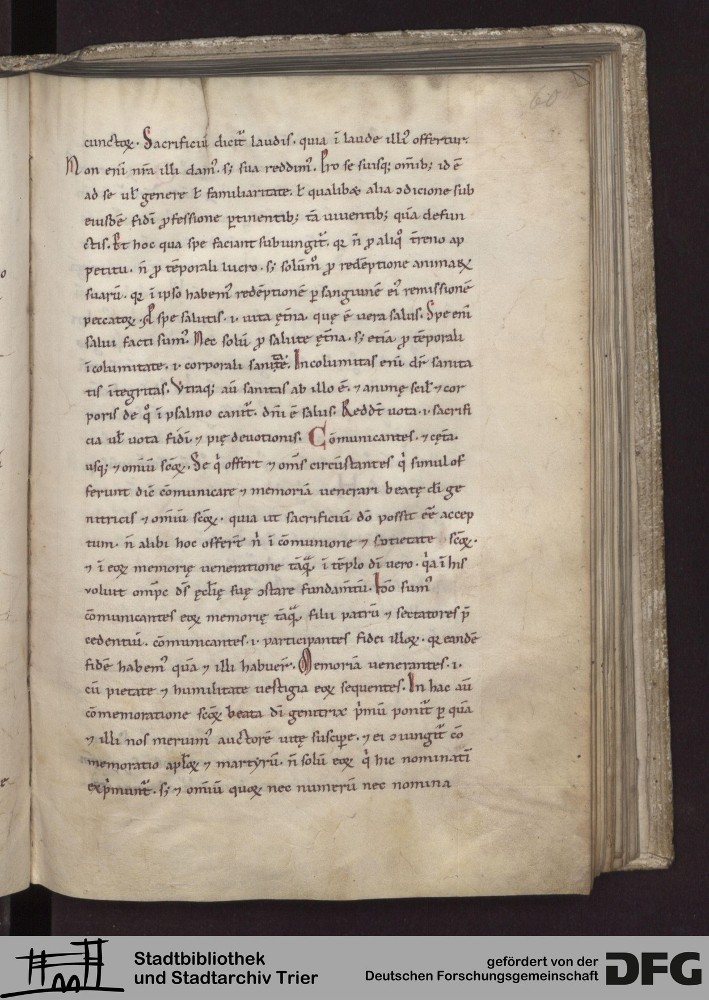 60
cunctoꝝ. Sacrificiū dicit᷑ laudis. quia ī laude illi᷒ offertur.
Non eni nr̄a illi dam᷒. s; sua reddim᷒. Pro se suisq; om̄ib; id ē
ad se uł genere ł familiaritate. ł qualibꝫ alia ↄdicione sub
eiusdē fidī ꝓfessione ꝑtinentib; tā uiuentib; quā defun
ctis. Et hoc qua spe faciant subiungit᷑. qꝛ n̄ ꝓ aliqͦ t̄reno ap
petitu. n̄ ꝓ tēporali lucro. s; solūm᷒ ꝓ redēptione animaꝝ
suarū. qꝛ ī ipso habem᷒ redēptionē ꝑ sanguinē ei᷒ remissionē
peccatoꝝ. P spe salutis. ı. uita ęt̄na. quę ē uera salus. Spe eni
salui facti sum᷒. Nec solū ꝓ salute ęt̄na. s; etiā ꝓ tēporali
īcolumitate. ı. corporali sanitate. Incolumitas eni dr̄ sanita
tis ītegritas. Vtraq; aū sanitas ab illo ē. ⁊ animę scil᷑ ⁊ cor
poris de qͦ ī psalmo canit᷑. dn̄i ē salus. Reddt̄ uota. ı. sacrifi
cia uł uota fidī ⁊ pię deuotionis. Cōmunicantes. ⁊ cęt̄a.
usq; ⁊ omniū scōꝝ. De qͥ offert ⁊ om̄s circūstantes qͥ simul of
ferunt dic̄ cōmunicare ⁊ memoriā uenerari beatę dī ge
nitricis ⁊ omniū scōꝝ. quia ut sacrificiū dō possit eē accep
tum. n̄ alibi hoc offert̄ nͥ ī cōmunione ⁊ societate scōꝝ.
⁊ ī eoꝝ memorię ueneratione tāqͣ. ī tēplo dī uero. qͥa ī his
voluit omp̄c ds̄ ęcl̄ię suę ↄstare fundam̄tū. Iđo sum᷒
cōmunicantes eoꝝ memorię tāqͣ. filii patrū ⁊ sectatores p̄
cedentiū. cōmunicantes. ı. participantes fidei illoꝝ. qꝛ eandē
fidē habem᷒ quā ⁊ illi habuer̄. Memoriā uenerantes. ı.
cū pietate ⁊ humilitate uestigia eoꝝ sequentes. In hac aū
cōmemoratione scōꝝ beata dī genitrix pͥmū ponit᷑ ꝑ quā
⁊ illi nos meruim᷒ auctorē uitę suscipe. ⁊ ei ↄiungit᷑ cō
memoratio apl̄oꝝ ⁊ martyrū. n̄ solū eoꝝ qͥ hic nominatī
expͥmunt᷑. s; ⁊ omniū quoꝝ nec numerū nec nomina
Stadtbibliothek
und Stadtarchiv Trier
gefördert von der
Deutschen Forschungsgemeinschaft
DFG